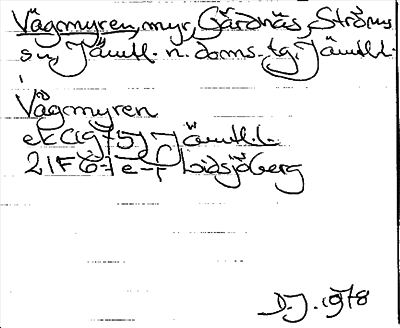 Vågmyren, myr, Gärdnäs, Ströms
sn, Jämtl. n. doms. tg, Jämtl.l.
Vågmyren
ek (1975) Jämtl. l.
21F 6-7 e-f Lidsjöberg
D.J. 1978